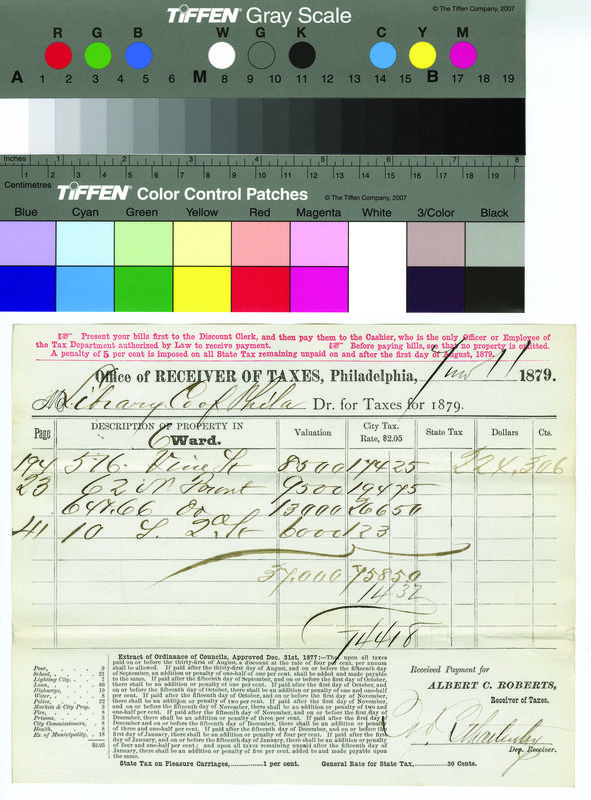 TIFFEN® Gray Scale
© The Tiffen Company, 2007
R G B W G K C Y M
A 1 2 3 4 5 6 M 8 9 10 11 12 13 14 15 B 17 18 19
Inches 1 2 3 4 5 6 7 8
Centimetres 1 2 3 4 5 6 7 8 9 10 11 12 13 14 15 16 17 18 19
TIFFEN® Color Control Patches
© The Tiffen Company, 2007
Blue Cyan Green Yellow Red Magenta White 3/Color Black
Present your bills first to the Discount Clerk, and then pay them to the Cashier, who is the only Officer or Employee of
the Tax Department authorized by Law to receive payment. Before paying bills, see that no property is omitted.
A penalty of 5 per cent is imposed on all State Tax remaining unpaid on and after the first day of August, 1879.
Office of RECEIVER OF TAXES, Philadelphia, 11 1879.
M Library Co of Phila Dr. for Taxes for 1879.
Page DESCRIPTION OF PROPERTY IN Valuation City Tax. State Tax Dollars Cts.
6 Ward. Rate, $2.05
194 516 Vine St 8500 174 25
23 62 N Front 9500 194 75
64 & 66 Do 13000 266 50
41 10 S. 2d St 6000 123
37,000 758 50
14 32
744 18
Extract of Ordinance of Councils, Approved Dec. 31st, 1877:—Then upon all taxes
paid on or before the thirty-first of August, a discount at the rate of four per cent. per annum
shall be allowed. If paid after the thirty-first day of August, and on or before the fifteenth day
of September, an addition or penalty of one-half of one per cent. shall be added and made payable
to the same. If paid after the fifteenth day of September, and on or before the first day of October,
there shall be an addition or penalty of one per cent. If paid after the first day of October, and
on or before the fifteenth day of October, there shall be an addition or penalty of one and one-half
per cent. If paid after the fifteenth day of October, and on or before the first day of November,
there shall be an addition or penalty of two per cent. If paid after the first day of November,
and on or before the fifteenth day of November, there shall be an addition or penalty of two and
one-half per cent. If paid after the fifteenth day of November, and on or before the first day of
December, there shall be an addition or penalty of three per cent. If paid after the first day of
December and on or before the fifteenth day of December, there shall be an addition or penalty
of three and one-half per cent. If paid after the fifteenth day of December, and on or before the
first day of January, there shall be an addition or penalty of four per cent. If paid after the first
day of January, and on or before the fifteenth day of January, there shall be an addition or penalty
of four and one-half per cent.; and upon all taxes remaining unpaid after the fifteenth day of
January, there shall be an addition or penalty of five per cent. added to and made payable upon
the same.
Poor, 9
School, 21
Lighting City, 7
Loan, 80
Highways, 10
Water, 8
Police, 22
Markets & City Prop. 3
Fire, 7
Prisons, 3
City Commissioners, 8
Health,
Ex. of Municipality, 18
$2.05
State Tax on Pleasure Carriages, 1 per cent. General Rate for State Tax, 30 Cents.
Received Payment for
ALBERT C. ROBERTS,
Receiver of Taxes.
Dep. Receiver.